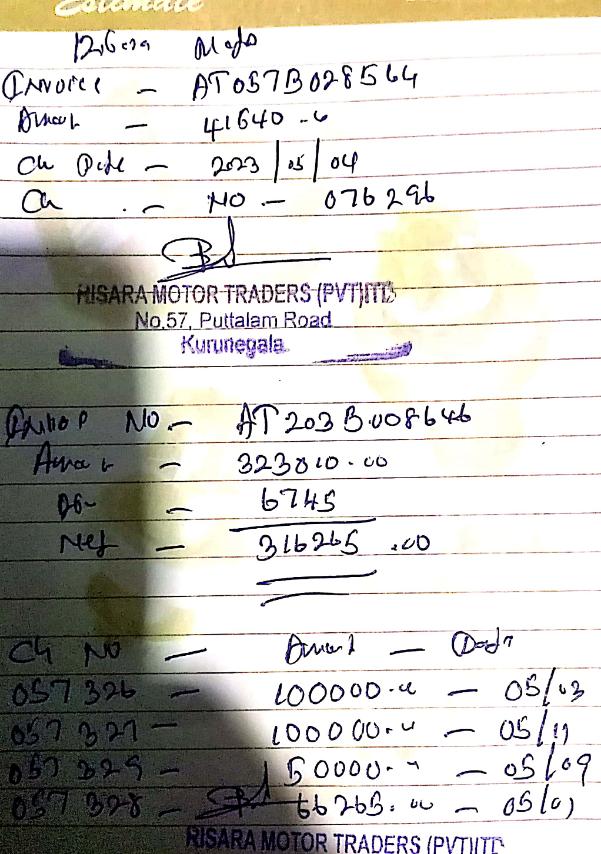 Estimate
Invoice - AT057B028564
Amount - 41640
Ch Date - 2023/05/04
Ch - NO - 076296
RISARA MOTOR TRADERS (PVT)LTD
No.57, Puttalam Road
Kurunegala.
NO - AT203B008646
Amount - 323010.00
- 6745
Net - 316265.00
Ch NO - Amount - Date
057326 - 100000 - 05/03
057327 - 100000 - 05/11
057329 - 50000 - 05/09
057328 - 66265.00 - 05/01
RISARA MOTOR TRADERS (PVT)LTD